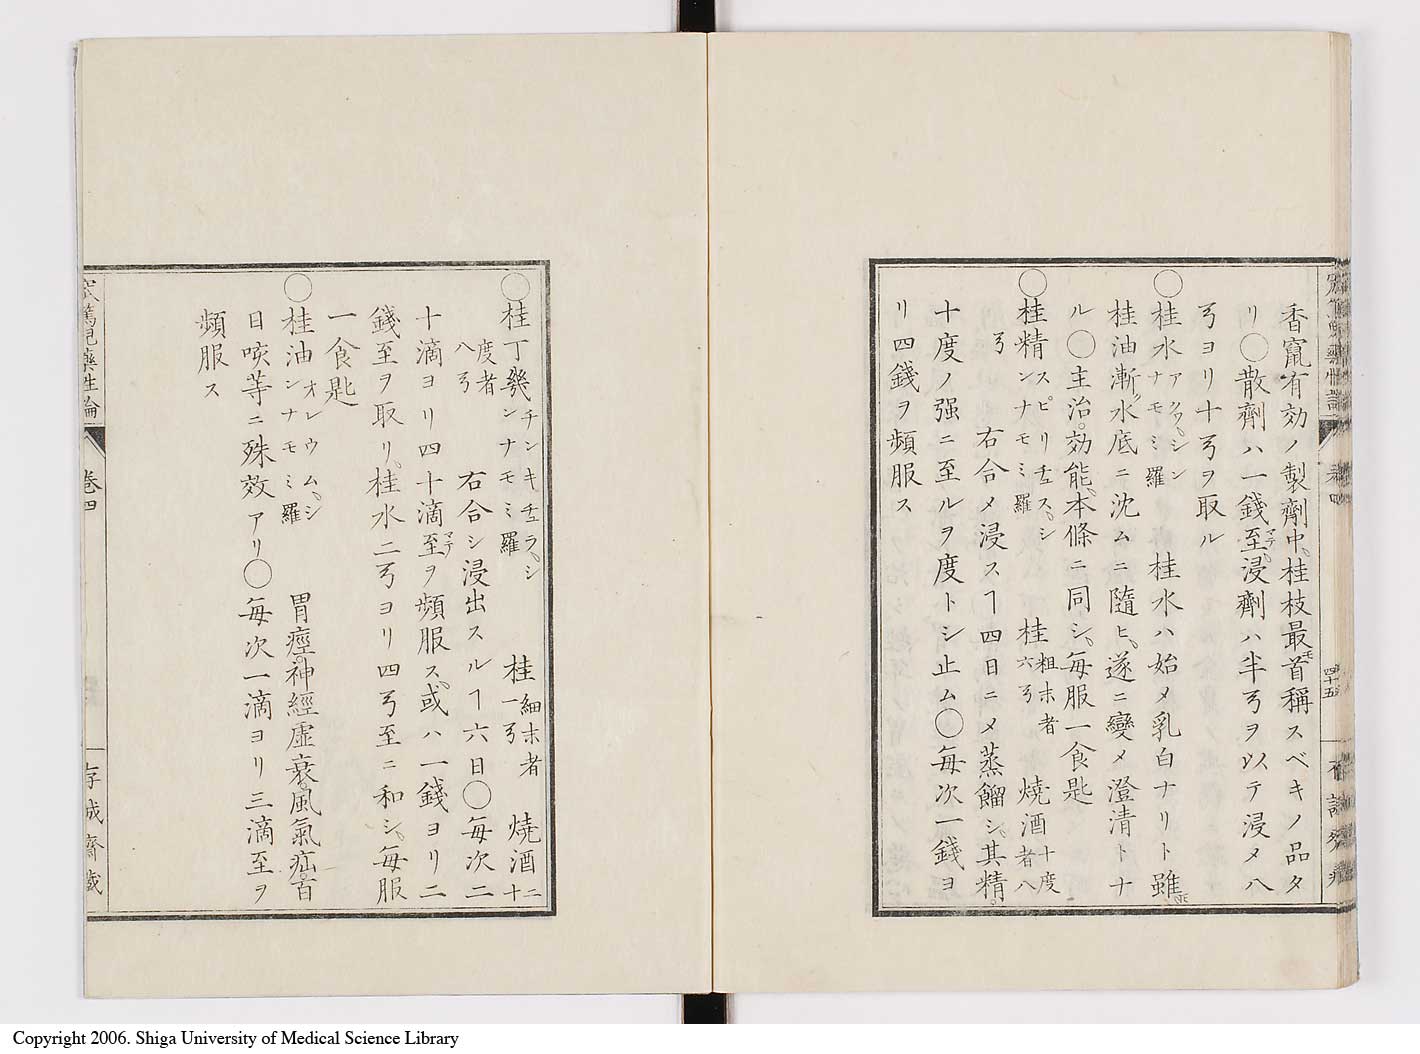 香竄有効ノ製劑中、桂枝最モ首稱スベキノ品タ
リ◯散劑ハ一錢至マデ、浸劑ハ半弓ヲ以テ浸メ八
弓ヨリ十弓ヲ取ル
◯桂水アクワ、シンナモミ羅 桂水ハ始メ乳白ナリト雖𪜈
桂油漸ク水底ニ沈ムニ隨ヒ、遂ニ變メ澄清トナ
ル◯主治。効能、本條ニ同シ、每服一食匙
◯桂精スピリチュス、シンナモミ羅 桂粗末者六弓 燒酒十度者八
弓 右合メ浸スヿ四日ニメ蒸餾シ、其精
十度ノ强ニ至ルヲ度トシ止ム◯每次一錢ヨ
リ四錢ヲ頻服ス
卷四
四十五
◯桂丁幾チンキチュラ、シンナモミ羅 桂細末者一弓 燒酒二十
度者八弓 右合シ浸出スルヿ六日◯每次二
十滴ヨリ四十滴至マデヲ頻服ス、或ハ一錢ヨリ二
錢至ヲ取リ、桂水二弓ヨリ四弓至ニ和シ、每服
一食匙
◯桂油オレウム、シンナモミ羅 胃痙。神經虛衰。風氣疝。百
日咳等ニ殊效アリ◯每次一滴ヨリ三滴至ヲ
頻服ス
窊篤児藥性論 卷四
存誠齋藏
Copyright 2006. Shiga University of Medical Science Library